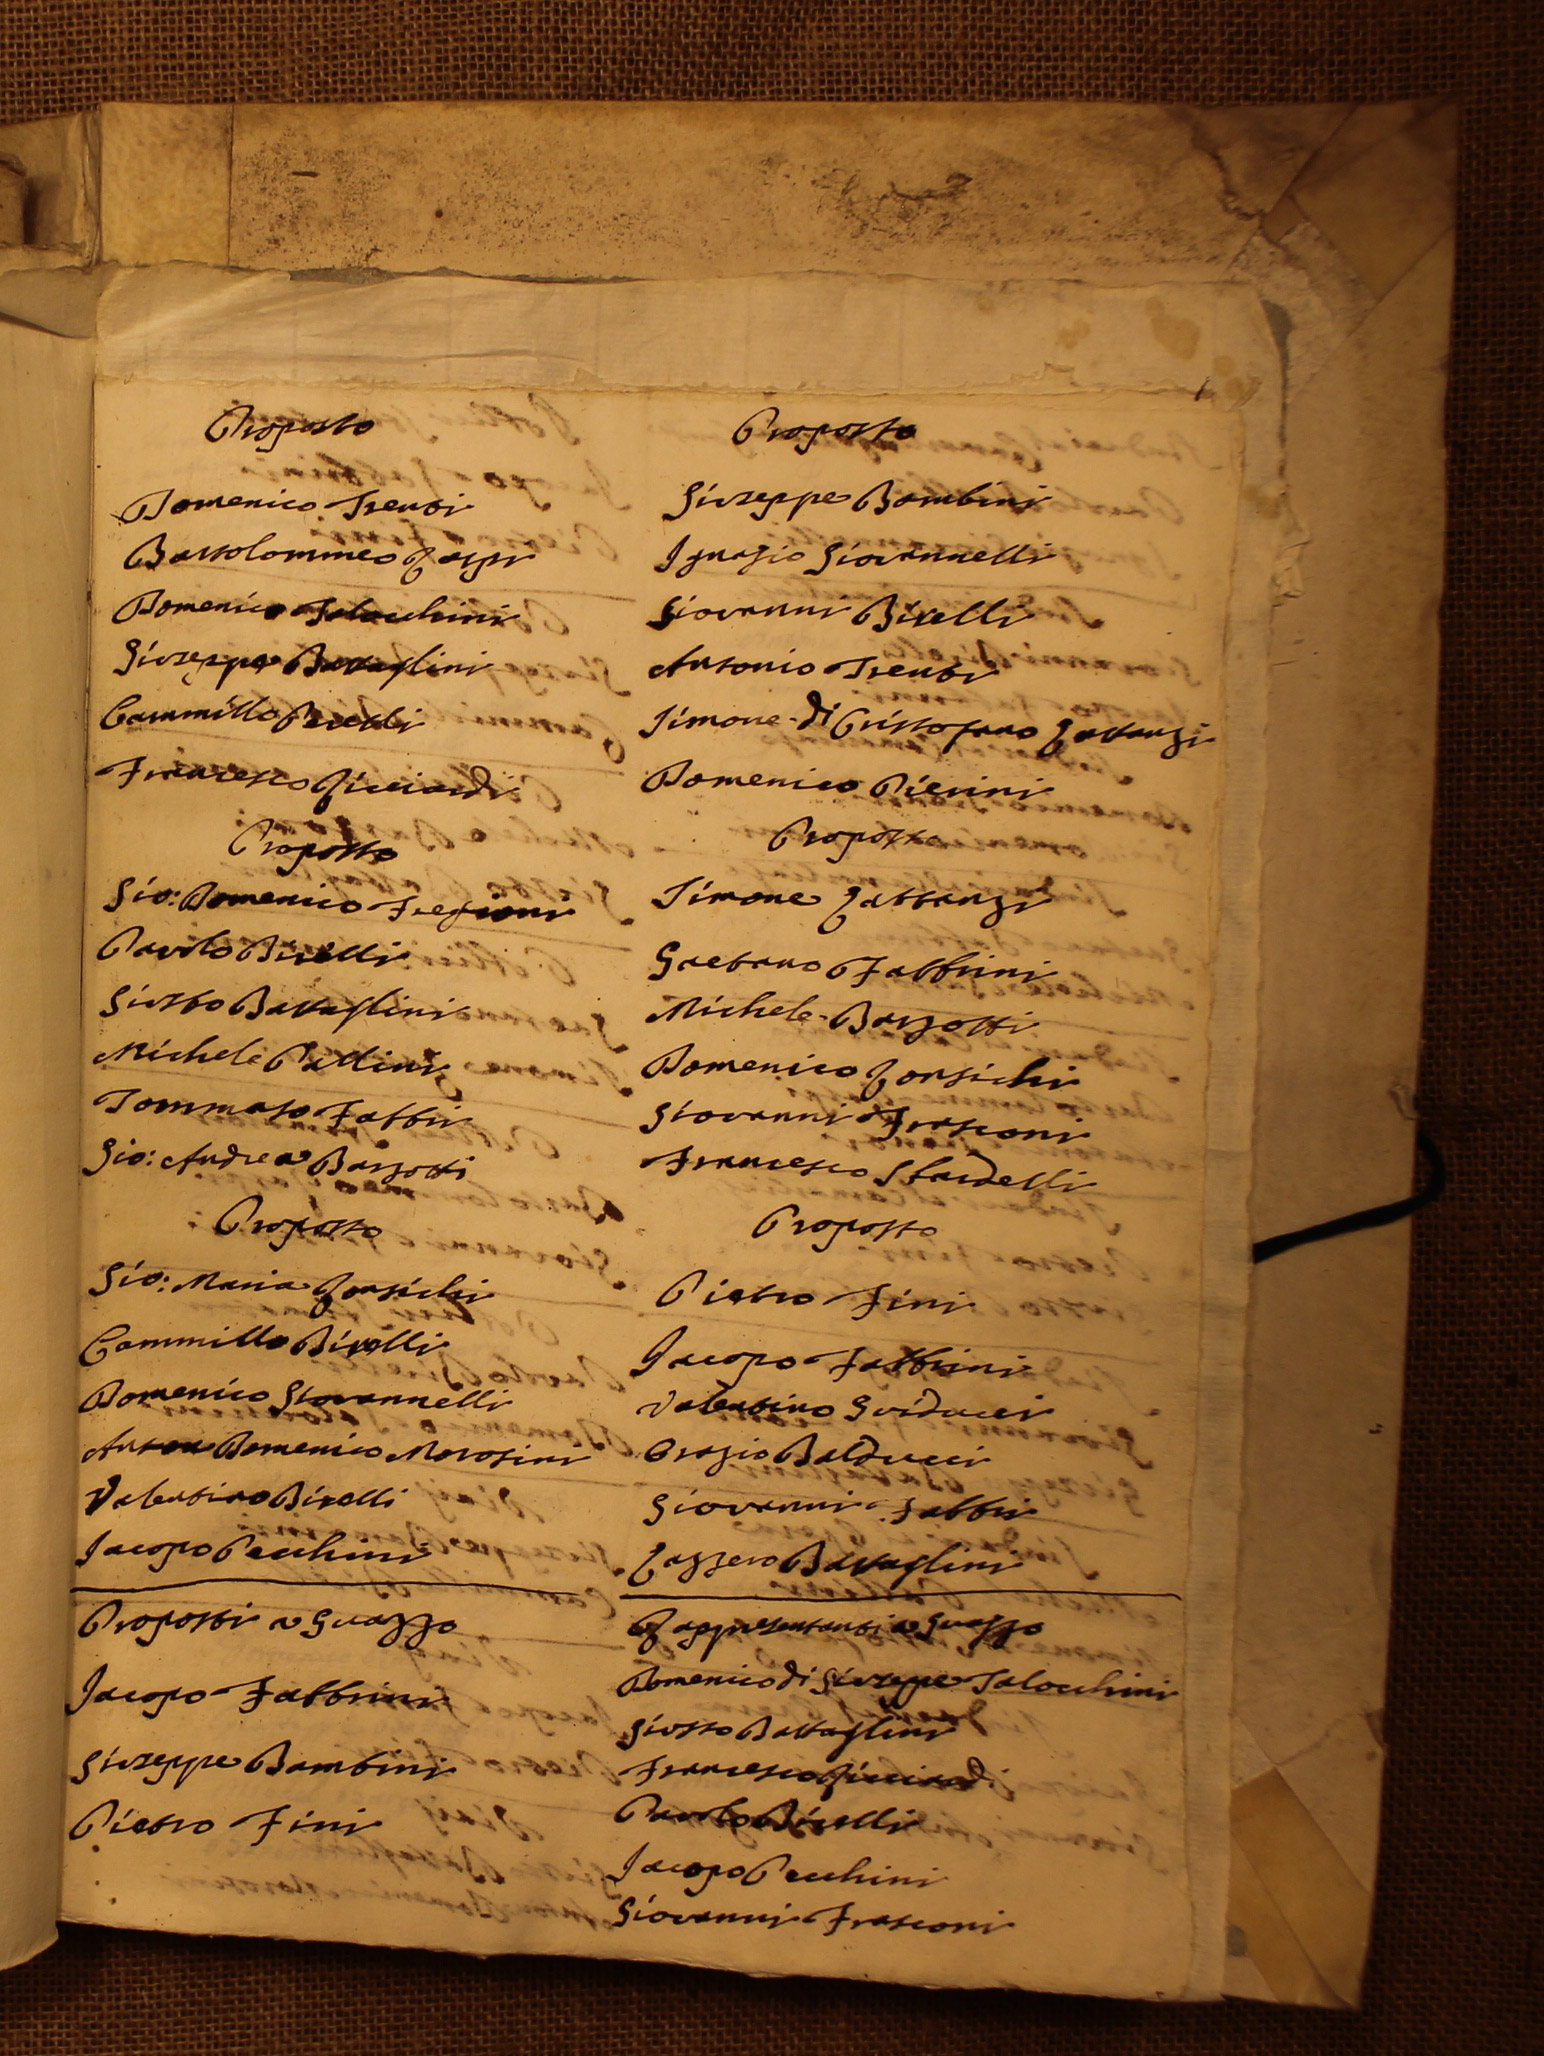 Proposto
Domenico Trenti
Bartolommeo
Domenico Talocchini
Giuseppe Battaglini
Cammillo Pecetti
Francesco Ricciardi
Proposto
Gio: Domenico Fregioni
Pavolo Birelli
Giusto Battaglini
Michele Pallini
Tommaso Fabbri
Gio: Andrea Barzotti
Proposto
Gio: Maria Ronsichi
Cammillo Birelli
Domenico Giovannelli
Anton Domenico Morosini
Valentino Birelli
Jacopo Pecchini
Proposti a Guazzo
Jacopo Fabbrini
Giuseppe Bambini
Pietro Fini
Proposto
Giuseppe Bambini
Ignazio Giovannelli
Giovanni Birelli
Antonio Trenti
Simone di Cristofano Lattanzi
Domenico Pierini
Proposto
Simone Lattanzi
Gaetano Fabbrini
Michele Barzotti
Domenico Ronsichi
Giovanni Frasconi
Francesco Sfardelli
Proposto
Pietro Fini
Jacopo Fabbrini
Valentino Guiducci
Orazio Balducci
Giovanni Fabbri
Lazzero Battaglini
Rappresentanti a Guazzo
Domenico di Giuseppe Talocchini
Giusto Battaglini
Francesco Ricciardi
Pavolo Birelli
Jacopo Pecchini
Giovanni Frasconi